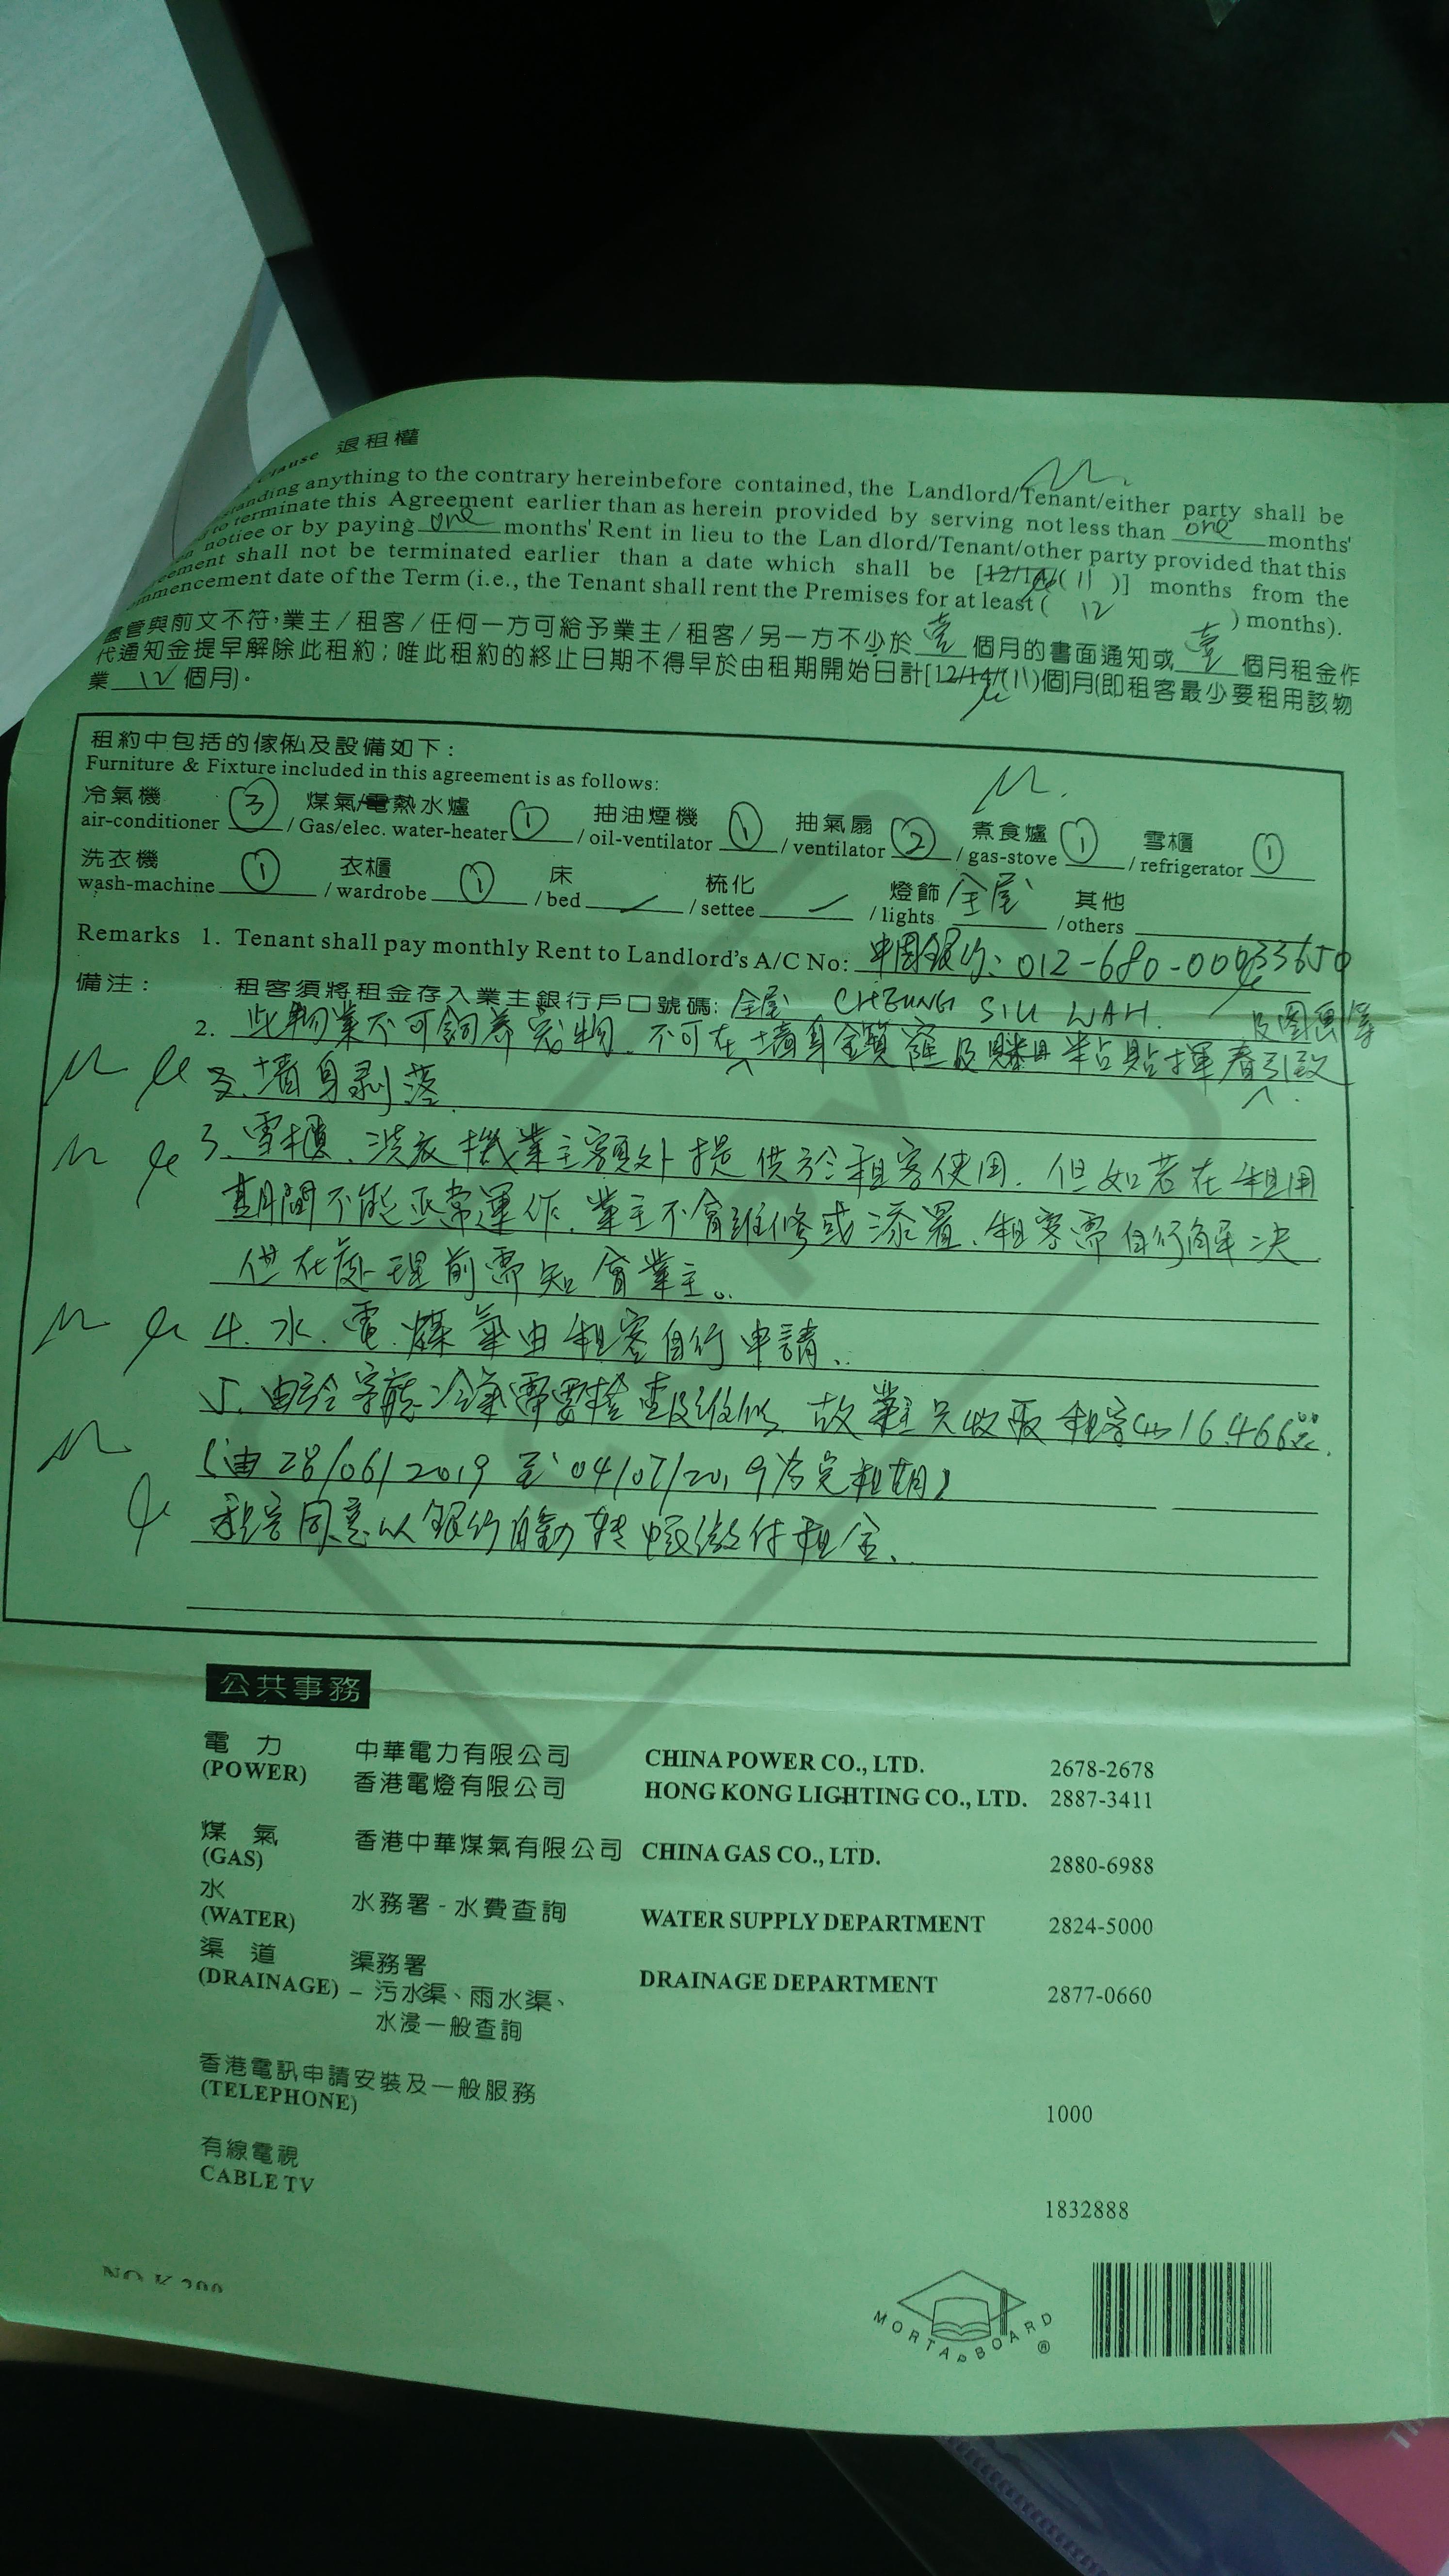 Clause 退租權
anding anything to the contrary hereinbefore contained, the Landlord/Tenant/either party shall be
to terminate this Agreement earlier than as herein provided by serving not less than one months'
notice or by paying one months' Rent in lieu to the Lan dlord/Tenant/other party provided that this
eement shall not be terminated earlier than a date which shall be [12/14/(11)] months from the
mmencement date of the Term (i.e., the Tenant shall rent the Premises for at least ( 12 ) months).
儘管與前文不符,業主/租客/任何一方可給予業主/租客/另一方不少於 壹 個月的書面通知或 壹 個月租金作
代通知金提早解除此租約;唯此租約的終止日期不得早於由租期開始日計[12/14/(11)個]月(即租客最少要租用該物
業 12 個月)。
租約中包括的傢俬及設備如下:
Furniture & Fixture included in this agreement is as follows:
冷氣機 煤氣/電熱水爐 抽油煙機 抽氣扇 煮食爐 雪櫃
air-conditioner 3 / Gas/elec. water-heater 1 / oil-ventilator 1 / ventilator 2 / gas-stove 1 / refrigerator 1
洗衣機 衣櫃 床 梳化 燈飾 其他
wash-machine 1 / wardrobe 1 / bed / settee / lights 全屋 / others
Remarks 1. Tenant shall pay monthly Rent to Landlord's A/C No: 中國銀行: 012-680-
備注: 租客須將租金存入業主銀行戶口號碼: CHEUNG SIU WAH.
全屋 及圖畫等
2. 此物業不可飼養寵物、不可在墻身鑽窿及 粘貼揮春引致
墻身剥落
3. 雪櫃、洗衣機業主額外提供於租客使用. 但如若在租用
期間不能正常運作、業主不會維修或添置、租客需自行解決
但在處理前需知會業主。
4. 水、電、煤氣由租客自行申請.
5. 由於客廳冷氣需要檢查及維修、故業主只收取租客 16,466
(由 28/06/2019 至 04/07/2019 為免租期)
租客同意以銀行自動轉帳繳付租金.
COPY
公共事務
電力 中華電力有限公司 CHINA POWER CO., LTD. 2678-2678
(POWER) 香港電燈有限公司 HONG KONG LIGHTING CO., LTD. 2887-3411
煤氣 香港中華煤氣有限公司 CHINA GAS CO., LTD. 2880-6988
(GAS)
水 水務署 - 水費查詢 WATER SUPPLY DEPARTMENT 2824-5000
(WATER)
渠道 渠務署 DRAINAGE DEPARTMENT 2877-0660
(DRAINAGE) – 污水渠、雨水渠、
水浸一般查詢
香港電訊申請安裝及一般服務
(TELEPHONE) 1000
有線電視
CABLE TV 1832888
NO K 200
MORTARBOARD ®